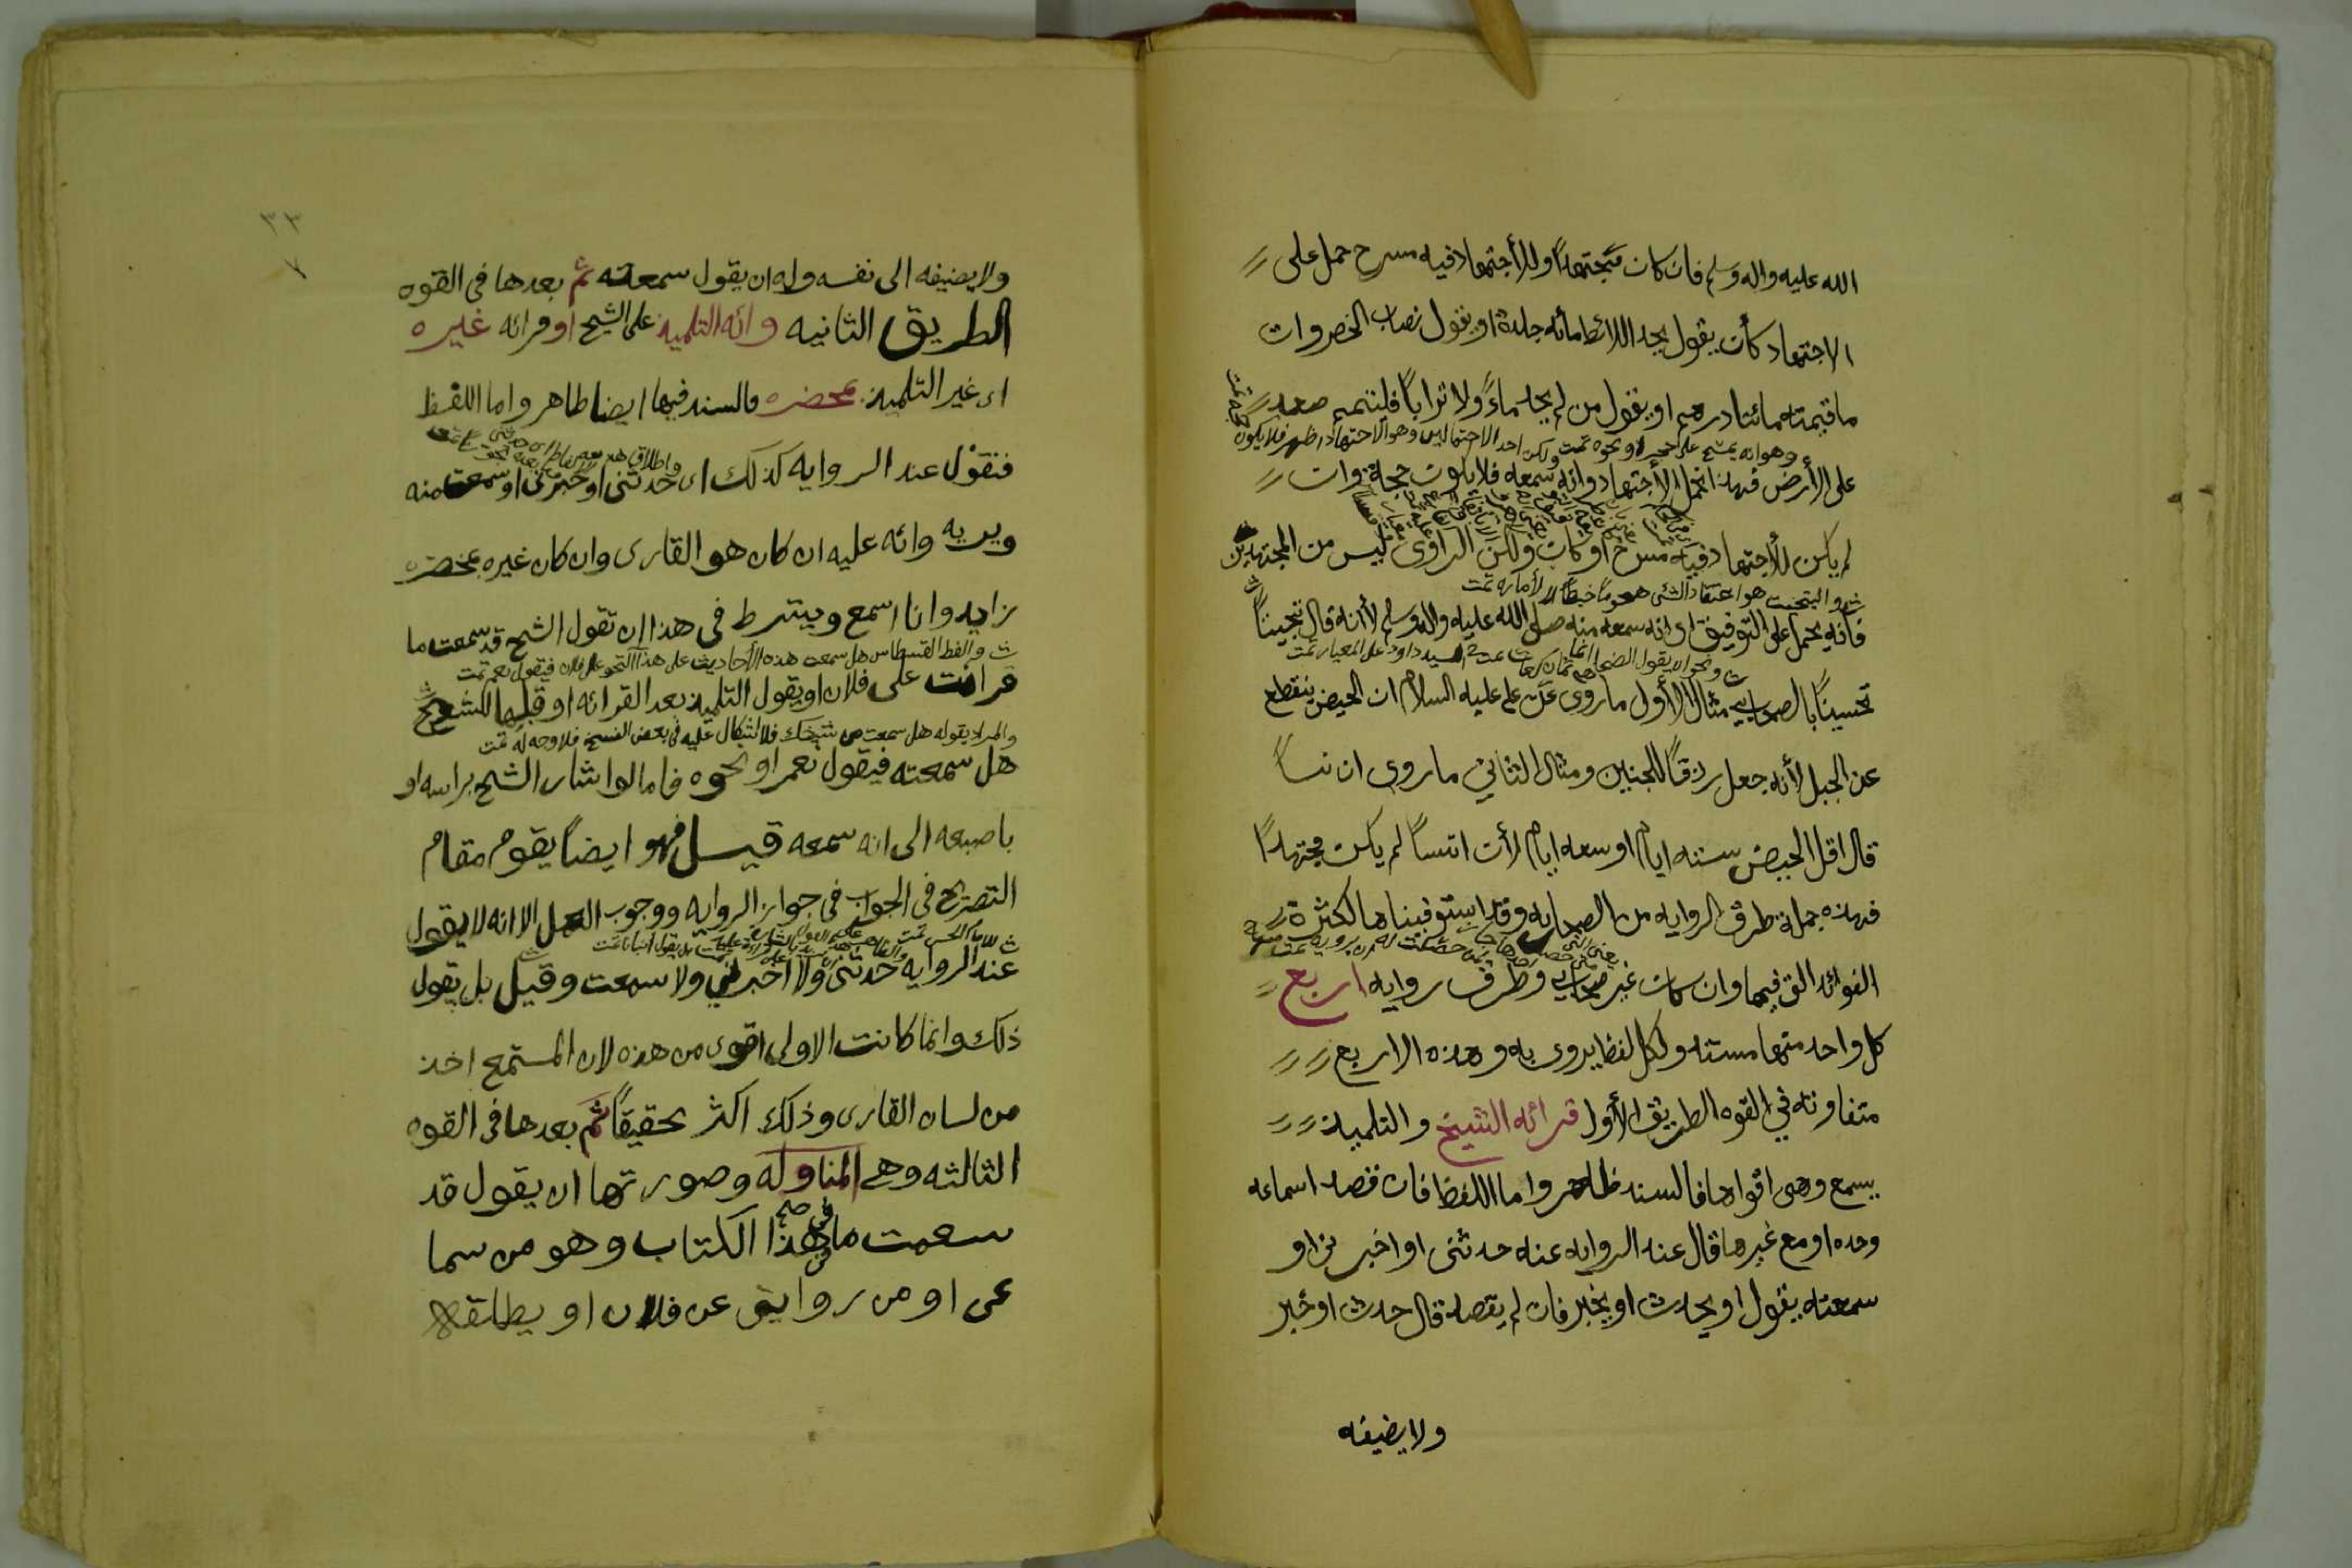 الله عليه واله وسلم فان كان مجتهداً وللأجتهاد فيه مسرح حمل على
الاجتهاد كأن يقول يجد اللائط مائه جلدة او يقول نصاب الخضروات
ما قيمته مائتا درهم او يقول من لم يجد ماءً ولا تراباً فليتمم صعد
وهو انه يمسح على حجر او نحوه تمت ولكن احد الاحتمالين وهو الاجتهاد اظهر فلا يكون
على الأرض فهذا يحمل الأجتهاد وانه سمعه فلا يكون حجة وان
لم يكن للأجتهاد فيه مسرح او كان ولكن الراوى ليس من المجتهدين
والتبخيت هو اعتقاد الشى هجوماً خبطاً لا لأماره تمت
فأنه يحمل على التوقيف اى انه سمعه منه صلى الله عليه واله وسلم لأنه قال تبخيتاً
تحسيناً بالصحابي مثال الأول ما روى عن علي عليه السلام ان الحيض ينقطع
عن الحبل لأنه جعل رزقاً للجنين ومثال الثاني ما روى ان انساً
قال اقل الحيض سته ايام او سعه ايام لأن انساً لم يكن مجتهداً
فهذه جملة طرق الروايه من الصحابه وقد استوفيناها لكثرة
الفوائد التى فيها وان كان غير صحابي وطرق روايه اربع
كل واحد منها مستند ولكل لفظ يروى به وهذه الاربع
متفاوته في القوه الطريق الأول قرائه الشيخ والتلميذ
يسمع وهى اقواها فالسند ظاهر واما اللفظ فان قصد اسماعه
وحده او مع غيرها قال عند الروايه عنه حدثنى او اخبرنى او
سمعته يقول او يحدث او يخبر فان لم يقصد قال حدث او خبر
ولا يضيفه
٣٣
ولا يضيفه الى نفسه وله ان يقول سمعته ثم بعدها فى القوه
الطريق الثانيه وائه التلميذ على الشيخ او قرائه غيره
اى غير التلميذ بمحضره فالسند فيها ايضا ظاهر واما اللفظ
فنقول عند الروايه كذلك اى حدثنى او اخبرنى او سمعت منه
ويريه وائه عليه ان كان هو القارى وان كان غيره بمحضره
زايد وانا اسمع ويشترط فى هذا ان تقول الشيح قد سمعت ما
والفظ القسطاس هل سمعت هذه الأحاديث على هذا النحو على فلان فيقول نعم تمت
قرائت على فلان او يقول التلميذ بعد القرائه او قبلها للشيخ
والمراد بقوله هل سمعت من شيخك فلا اشكال عليه فى بعض النسخ فلا وجه له تمت
هل سمعته فيقول نعم او نحوه فاما لو اشار الشيح براسه او
باصبعه الى انه سمعه قيل فهو ايضاً يقوم مقام
التصريح فى الجواب فى جواز الروايه ووجوب العمل الا انه لا يقول
عند الروايه حدثنى ولا اخبرني ولا سمعت وقيل بل يقول
ذلك وانما كانت الاولى اقوى من هذه لان المستمع اخذ
من لسان القارى وذلك اكثر تحقيقاً ثم بعدها فى القوه
الثالثه وهي المناوله وصورتها ان يقول قد
سمعت ما في هذا الكتاب وهو من سما
عى او من روايتى عن فلان او يطلقه